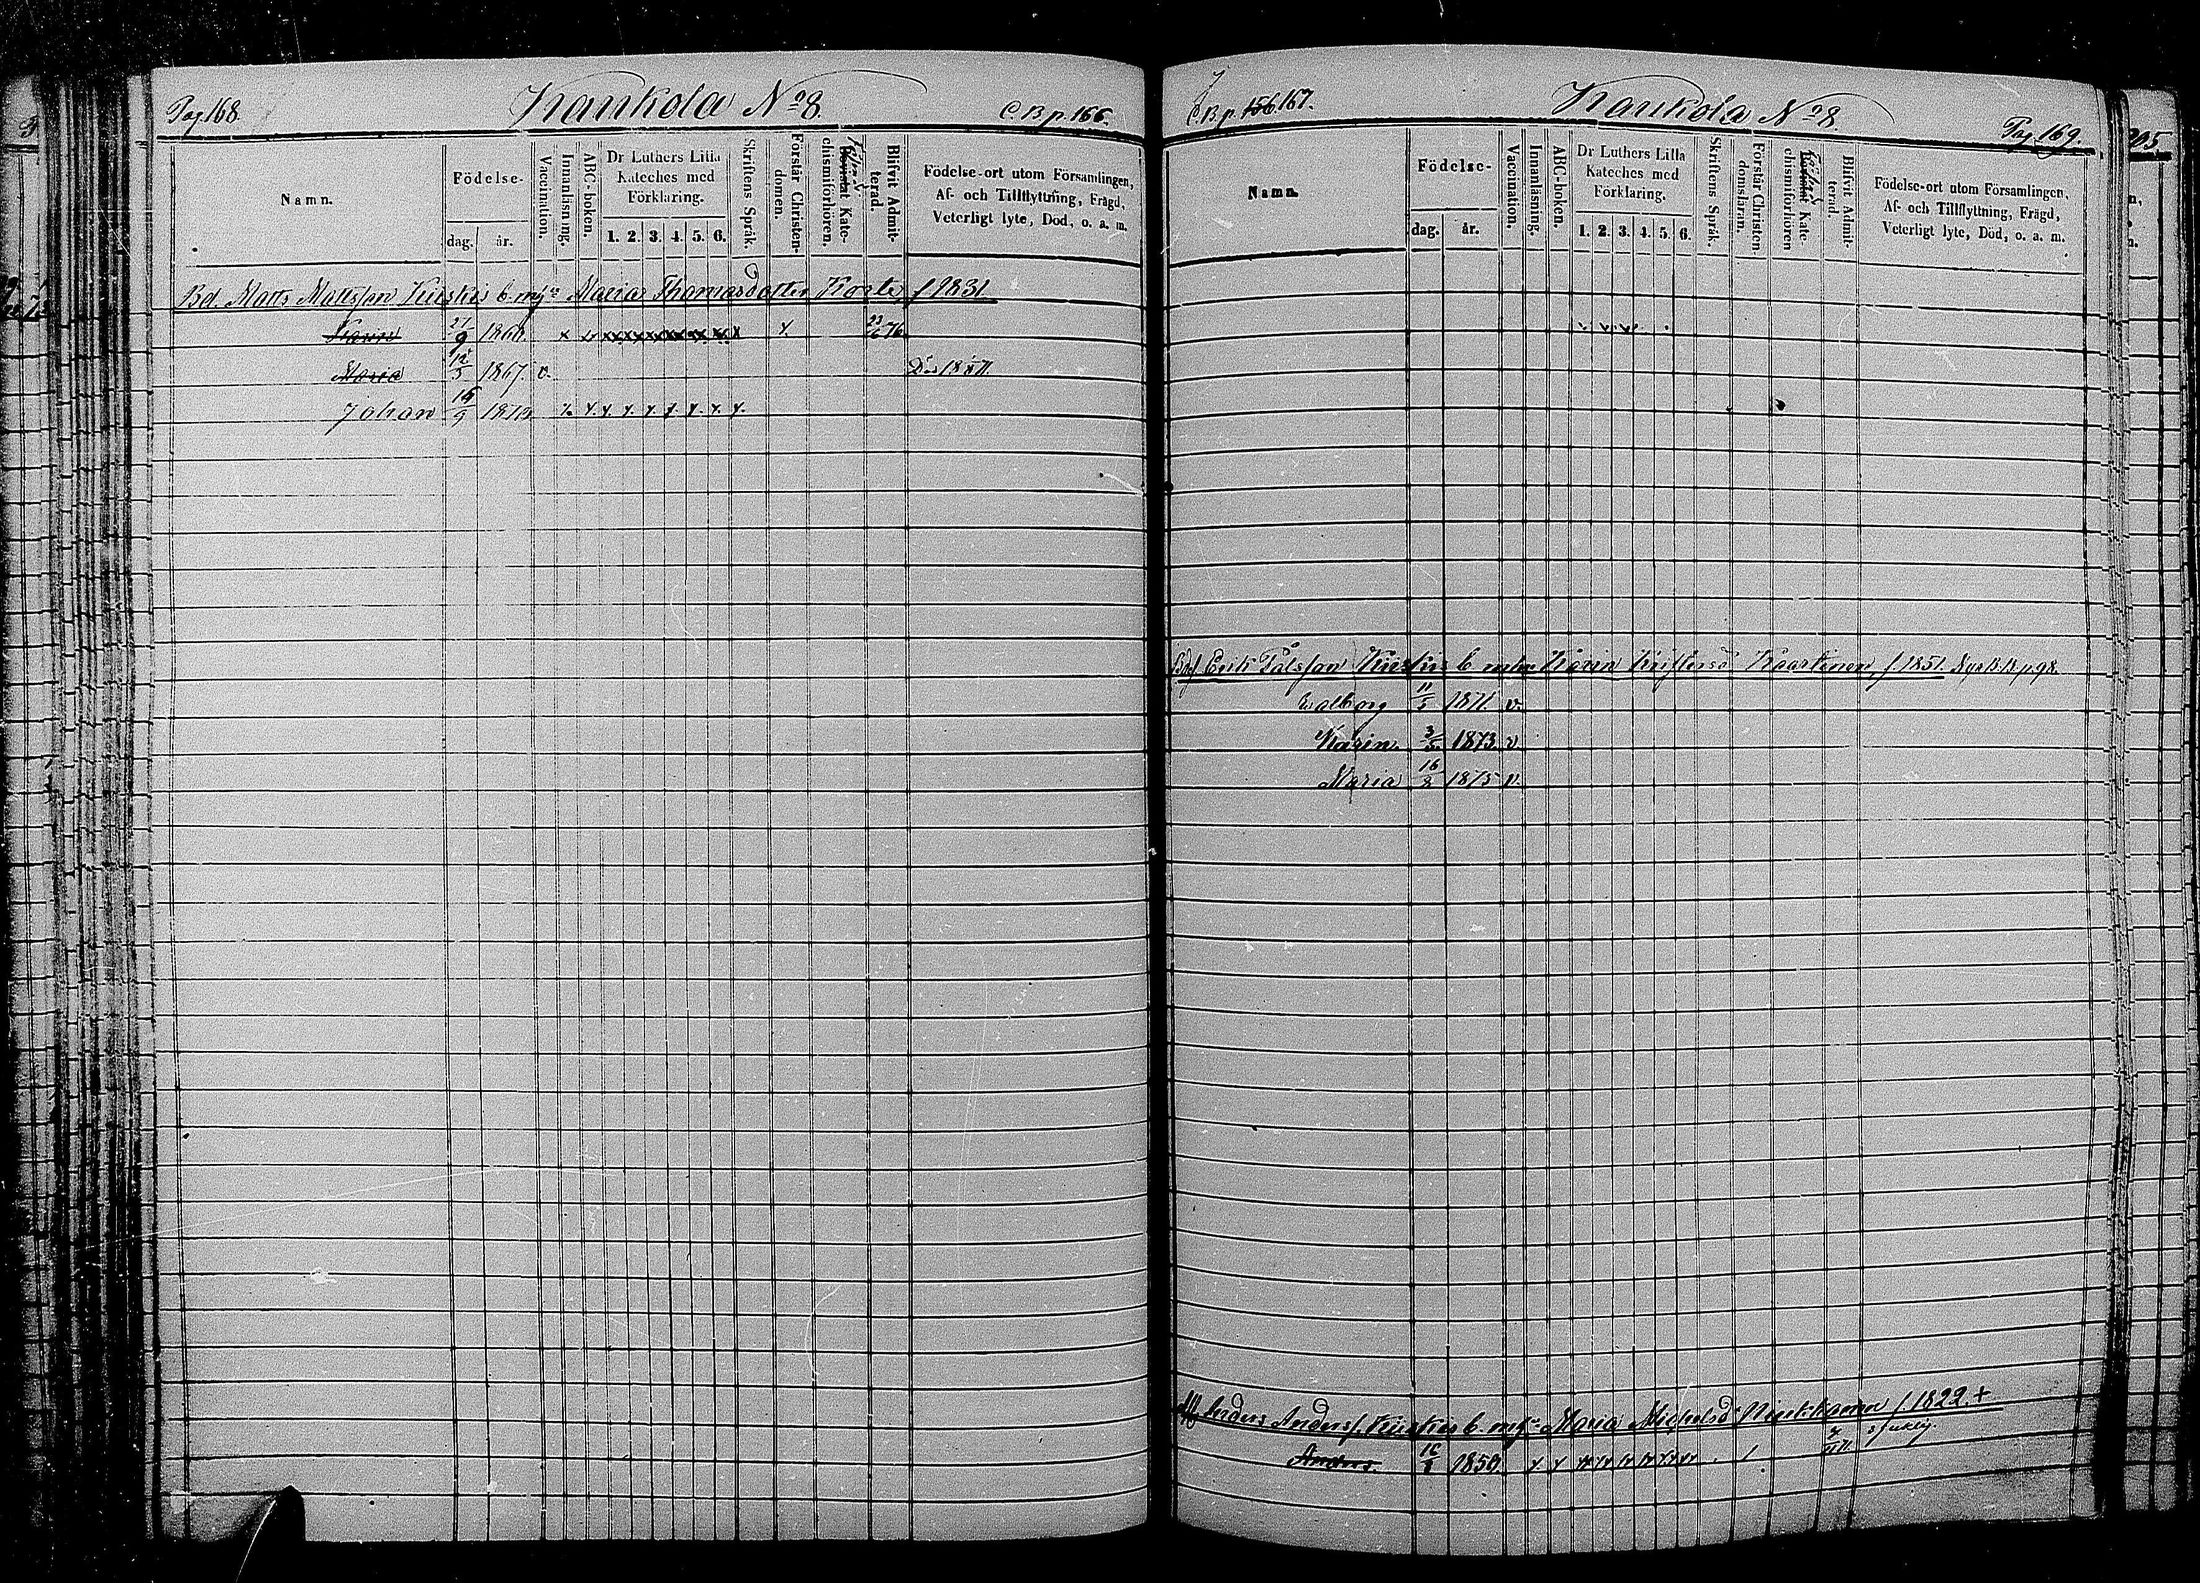 Pag. 168.
Kaukola No 8.
C. B. p. 166.
Namn.
Födelse-
dag.
år.
Vaccination.
Innanläsning.
ABC-boken.
Dr Luthers Lilla
Kateches med
Förklaring.
1. 2. 3. 4. 5. 6.
Skriftens Språk.
Förstår Christen-
domen.
Bevistat Kate-
chismiförhören.
Blifvit Admit-
terad.
Födelse-ort utom Församlingen,
Af- och Tillflyttning, Frägd,
Veterligt lyte, Död, o. a. m.
Bd. Matts Mattsson Kiiskis b. m. h:s Maria Thomasdotter f 1831.
Karin 21/9 1860. x x x x x x x x x
Maria 12/3 1867. v.
Johan 9
C. B. p. 156 167.
Kaukola No 8.
Pag. 169.
Namn.
Födelse-
dag.
år.
Vaccination.
Innanläsning.
ABC-boken.
Dr Luthers Lilla
Kateches med
Förklaring.
1. 2. 3. 4. 5. 6.
Skriftens Språk.
Förstår Christen-
domsläran.
Kate-
chismiförhören
Blifvit Admit-
terad.
Födelse-ort utom Församlingen,
Af- och Tillflyttning, Frägd,
Veterligt lyte, Död, o. a. m.
Erik Pålsson Kiiskis b. enka Karin Kristersd Kaartinen, f. 1851.
Walborg 11/5 1871. v.
Karin. 3/5 1873. v.
Maria 16/8 1875 v.
Anders Anderss. Kiiskis b. m. h:s Maria Michelsd f. 1822. +
Anders. 16 1850.
205